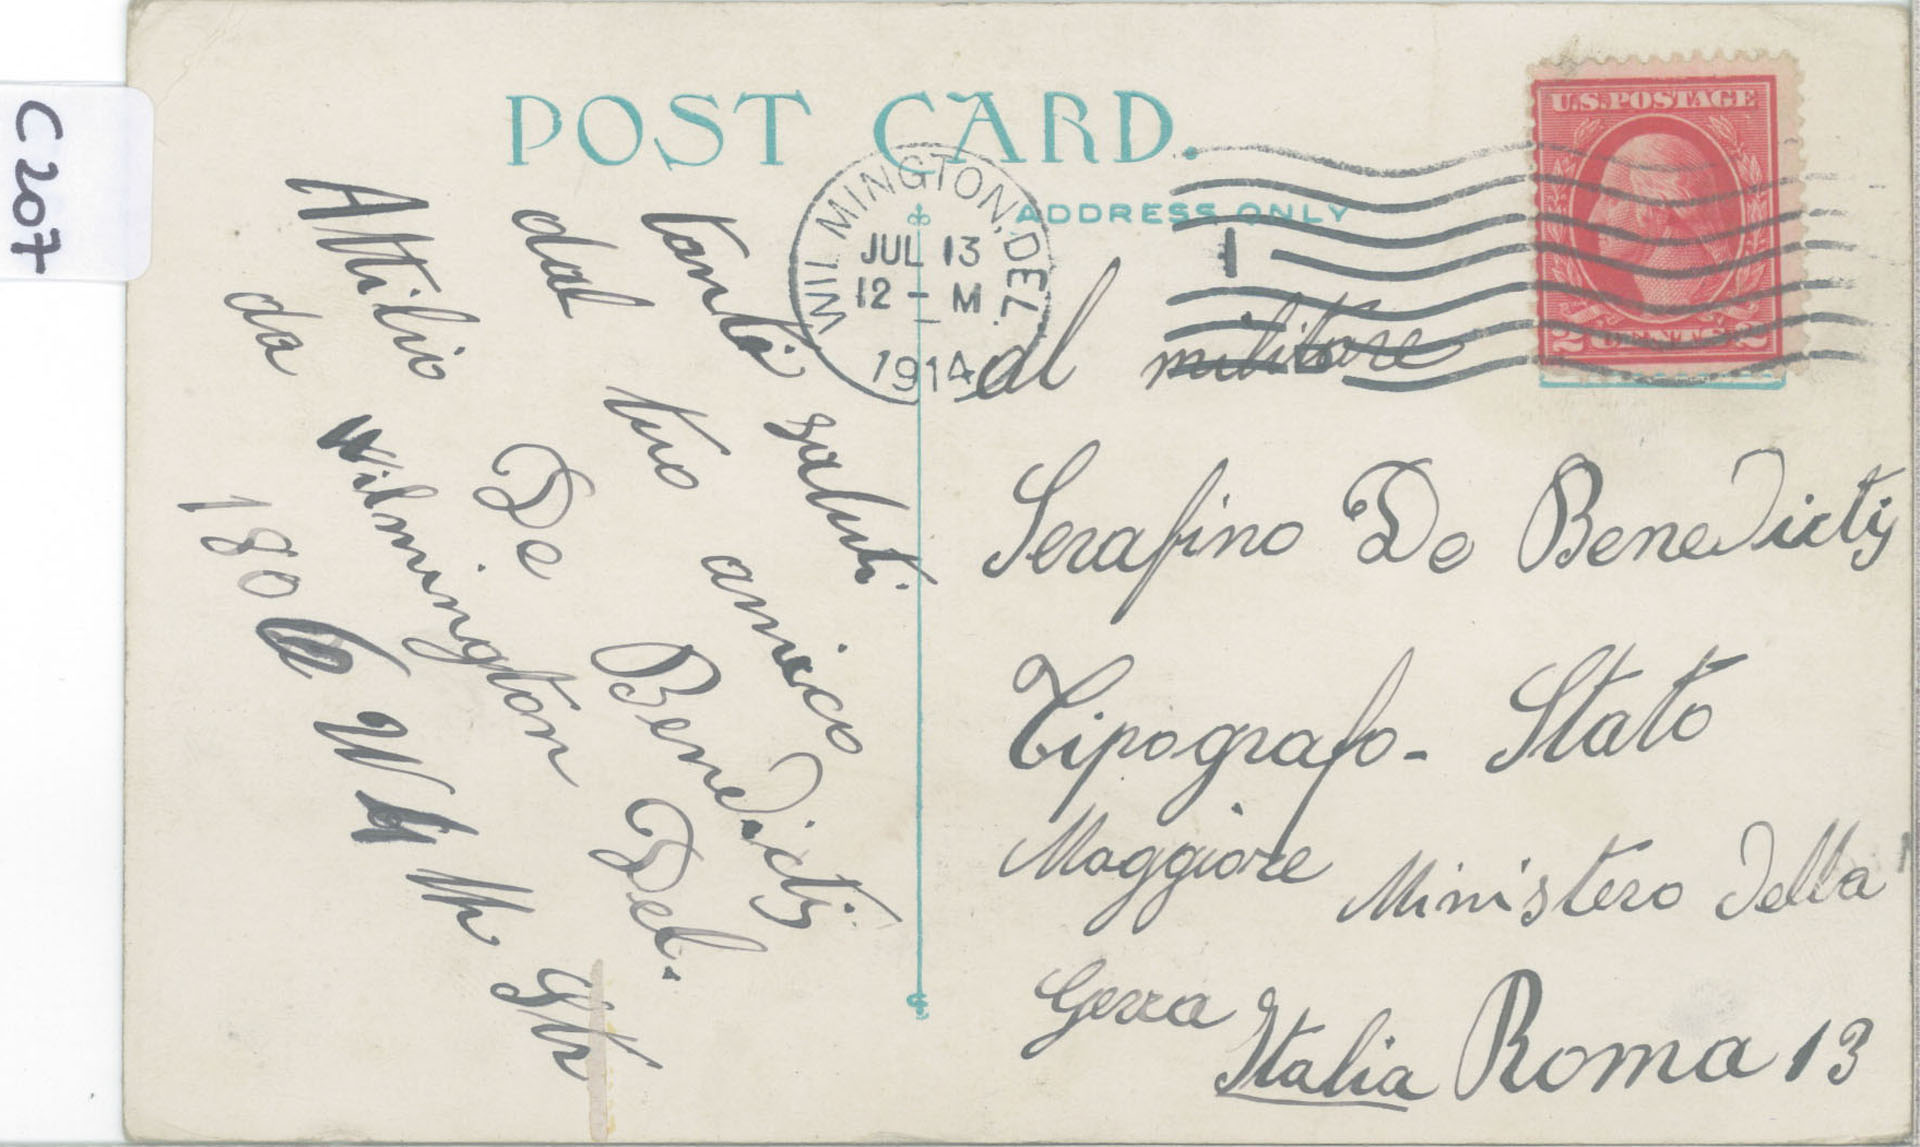 C 207
POST CARD.
ADDRESS ONLY
WILMINGTON, DEL.
JUL 13
12 - M
1914
1
U.S. POSTAGE
2 CENTS 2
tanti saluti
dal tuo amico
Attilio De Benedictis
da Wilmington Del.
1806 W 4 th Str
al militare
Serafino De Benedictis
Tipografo - Stato
Maggiore Ministero della
Gerra
Italia Roma 13